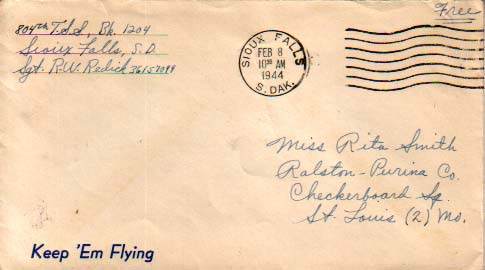 804th T.S.S, Bk. 1204
Sioux Falls, S.D.
Sgt. R.W. Redick 36157099
SIOUX FALLS
FEB 8
10 30 AM
1944
S. DAK.
Free
Miss Rita Smith
Ralston-Purina Co.
Checkerboard Sq.
St. Louis (2) Mo.
Keep 'Em Flying